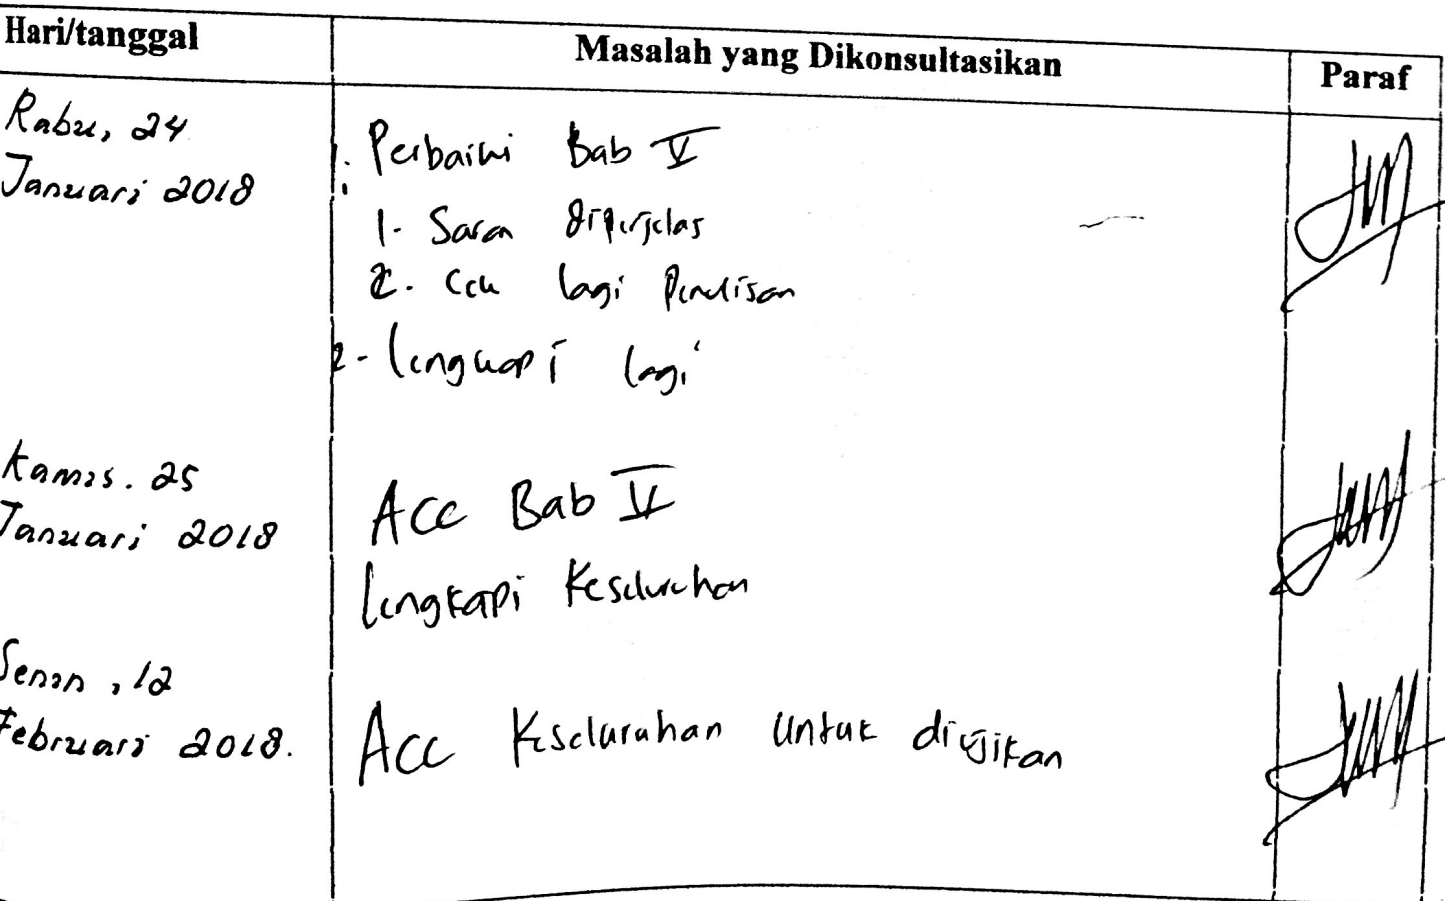 Hari/tanggal Masalah yang Dikonsultasikan Paraf
Rabu, 24
Januari 2018
1. Perbaiki Bab V
1. Saran diperjelas
2. Cek lagi Penulisan
2. lengkapi lagi
Kamis. 25
Januari 2018
Acc Bab V
lengkapi Keseluruhan
Senin, 12
Februari 2018.
Acc Keseluruhan untuk diujikan